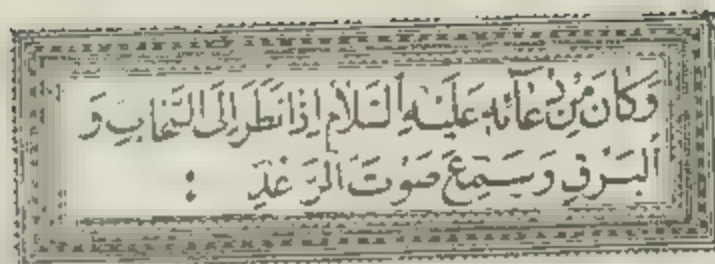 وَكَانَ مِنْ دُعَآئِهِ عَلَيْهِ السَّلَامُ اِذَا نَظَرَ اِلَى السَّحَابِ وَ
الْبَرْقِ وَسَمِعَ صَوْتَ الرَّعْدِ :